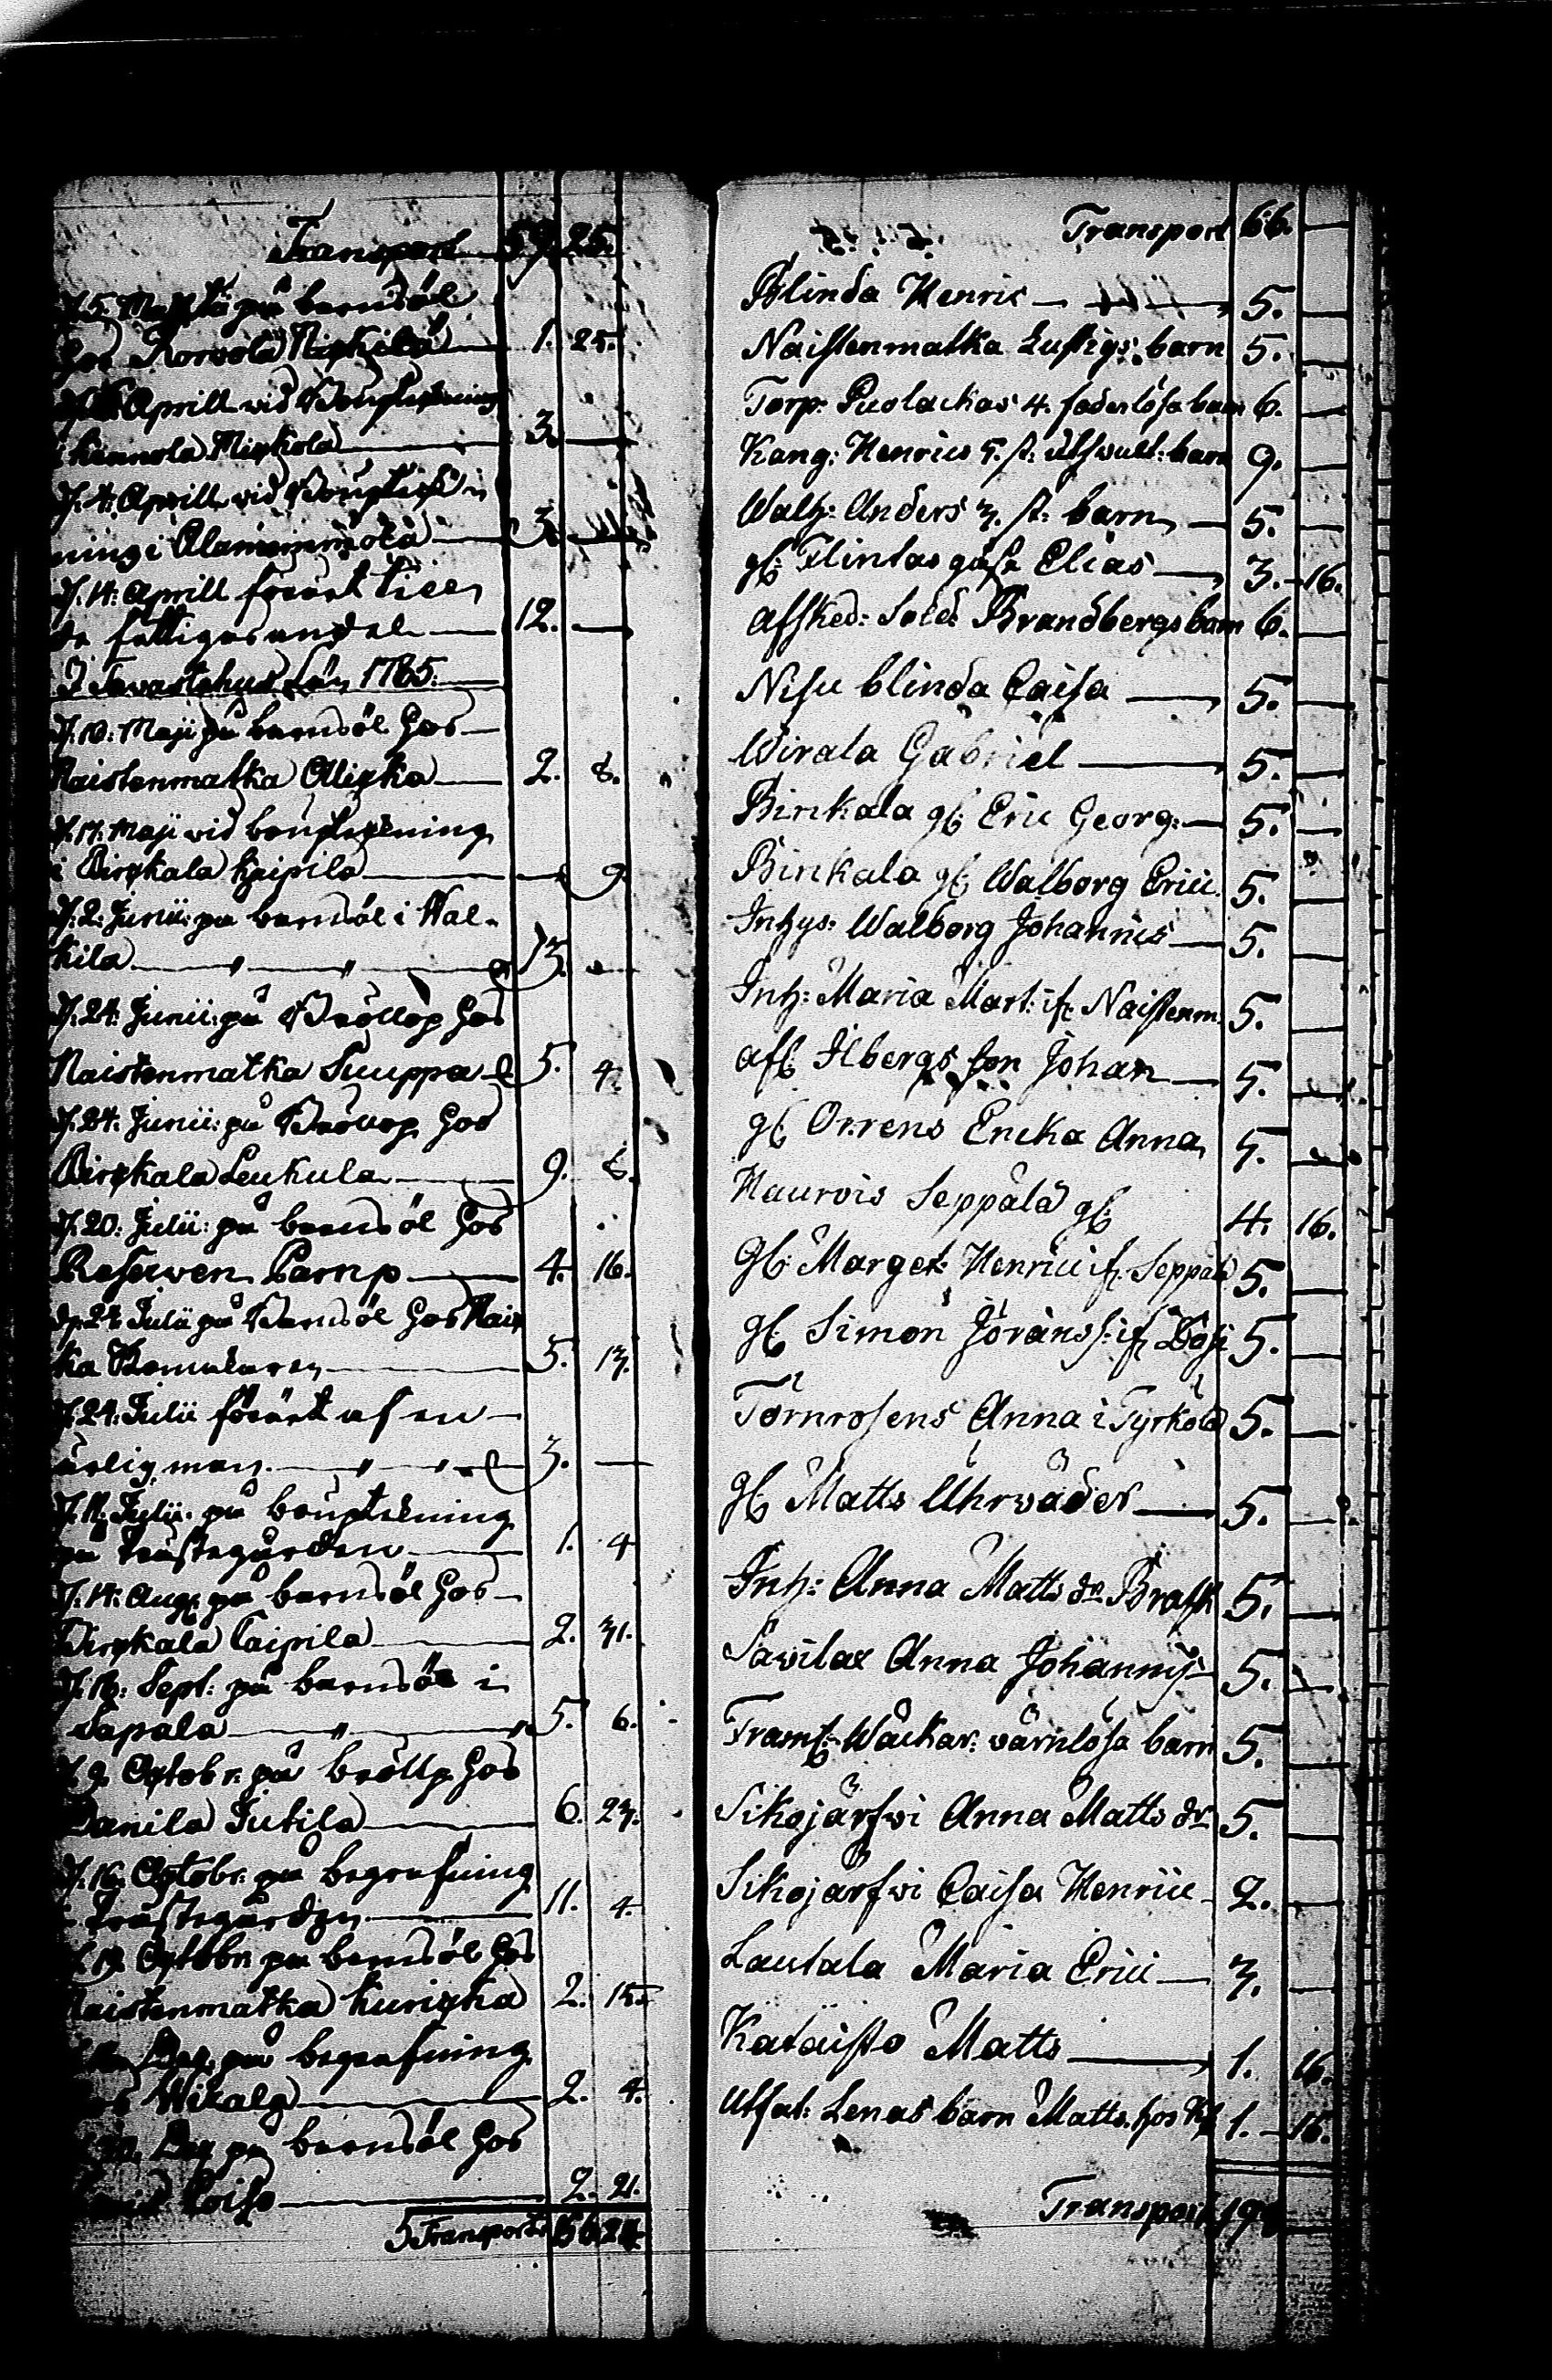 Transport 59. 25.
d. 5. Martii på barnsöl
hos Korvola Mickilä 1. 25.
Aprill vid Bouptekning
i Kannola Mickola 3. —
d. 4. Aprill vid Bouptek-
ning i 3. —
d. 14: Aprill förärt till
de fattigas andel 12. —
I Tavastehus Län 1785.
d. 10: Maji på barnsöl hos
Naistenmatka Ollicka 2. 8.
d. 17: Maji vid bouptekning
i Birckala Kaipila — 9.
d. 2: Junii på barnsöl i Wal-
kila 13. —
d. 24: Junii: på Bröllop hos
Naistenmatka Suuppa 5. 4.
d. 24: Junii: på Bröllop hos
Birckala Leukula 9. 8.
d. 20: Julii: på barnsöl hos
Reserven Barnp 4. 16.
d. 24: Julii på Barnsöl hos
5. 13.
d. 24: Julii förärt af en
ärlig man 3. —
Julii: på bouptekning
på Prästegården 1. 4
d. 14: Aug: på barnsöl hos
Birckala Caipila 2. 31.
d. 18: Sept: på barnsöl i
Sapala 5. 6.
d. 9. Octobr: på bröllp hos
Danila Jutila 6. 23.
d. 16. Octobr: på begrafning
i Prästegården 11. 4.
d. 19. Octobr: på barnsöl hos
Naistenmatka Kuricka 2. 15.
på begrafning
Wikala 2. 4.
på barnsöl hos
2. 21.
Transport
Transport 66. —
Blinda Henric — 5. —
Naistenmatka Lustigs: barn 5. —
Torp: Puolackas 4. faderlösa barn 6. —
Kang: Henrics 5. st: utsvult: barn 9. —
Waltz: Anders 3. st: barn — 5. —
gl: Flintas gosse Elias — 3. 16.
afsked: Sold: Brandbergs barn 6. —
Nisu blinda Caisa — 5. —
Wirala Gabriel — 5. —
Birckala gl: Eric Georg: — 5. —
Birckala gl: Walborg Erici. 5. —
Inhys: Walborg Johannis — 5. —
Inh: Maria Mart: if. Naistenm. 5. —
afl: Ilbergs son Johan — 5. —
gl: Orrens Encka Anna 5. —
Haurois Seppälä gl: 4. 16.
Gl: Marget: Henrici if. Seppälä 5. —
gl: Simon Jöransf: if 5. —
Törnrosens Anna i Tyrkölä 5. —
gl: Matts Uhrväder — 5. —
Inh: Anna Matts dr. Brask 5. —
Savilax Anna Johannis 5. —
Wäckar: värnlösa barn 5. —
Sikojärfwi Anna Matts dr 5. —
Sikojärfwi Caisa Henrici 2. —
Lautala Maria Erici — 3. —
Kataisto Matts — 1. 16.
Utfat: Lenas barn Matts. hos 1. 16.
Transport